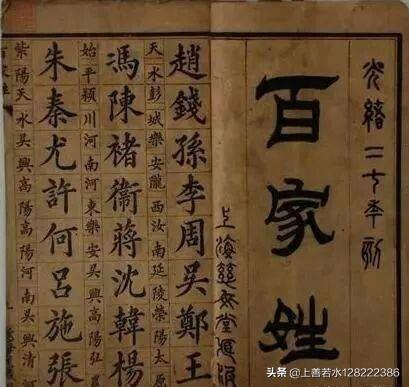 光緒二七年刻
百家姓
上海慈母堂
趙錢孫李周吳鄭王
天水彭城樂安隴西汝南延陵滎陽太
馮陳褚衛蔣沈韓楊
始平潁川河南河東樂安吳興弘
朱秦尤許何呂施張
紫陽天水吳興高陽高陽河南吳興清
头条 @上善若水128222386